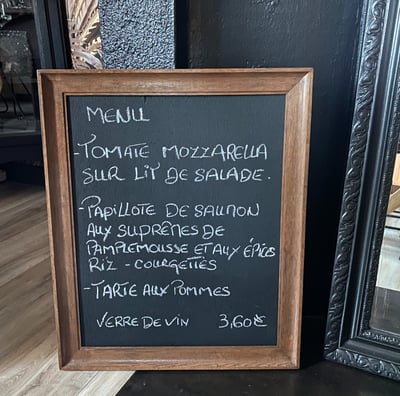 MENU
-TOMATE MOZZARELLA
SUR LIT DE SALADE.
-PAPILLOTE DE SAUMON
AUX SUPRÊMES DE
PAMPLEMOUSSE ET AUX ÉPICES
RIZ - COURGETTES
-TARTE AUX POMMES
VERRE DE VIN 3,60€